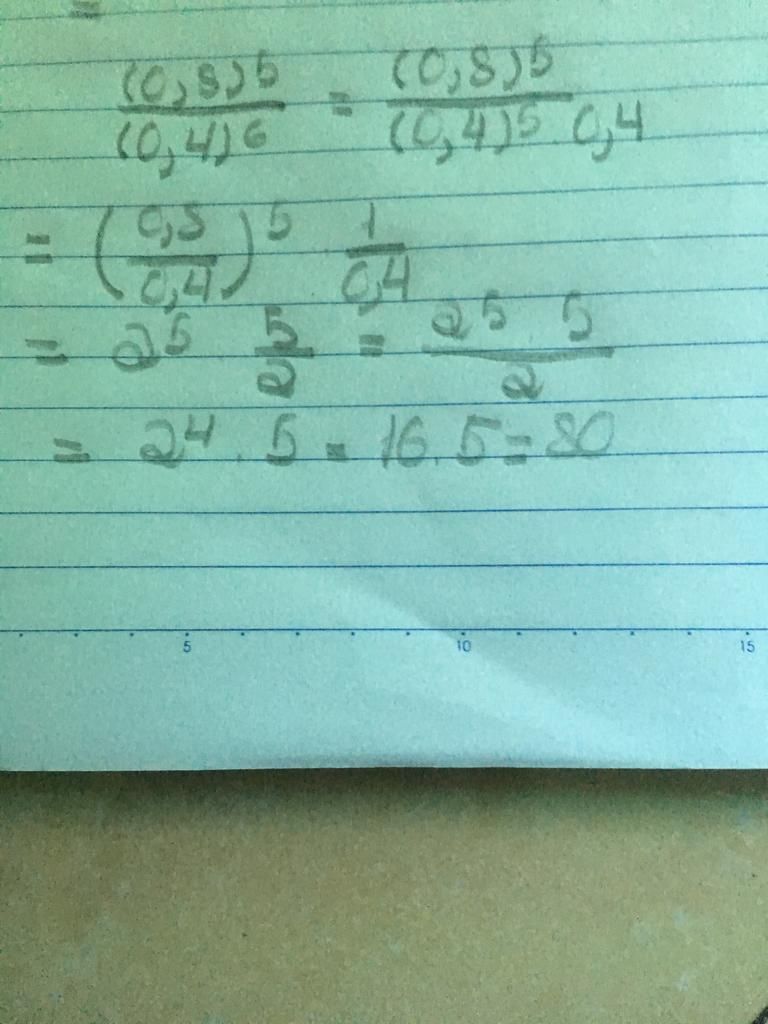 =
(0,8)5 / (0,4)6 = (0,8)5 / (0,4)5 0,4
= (0,8 / 0,4)5 1 / 0,4
= 25 5 / 2 = 25 5 / 2
= 24 . 5 = 16 . 5 = 80
5 10 15